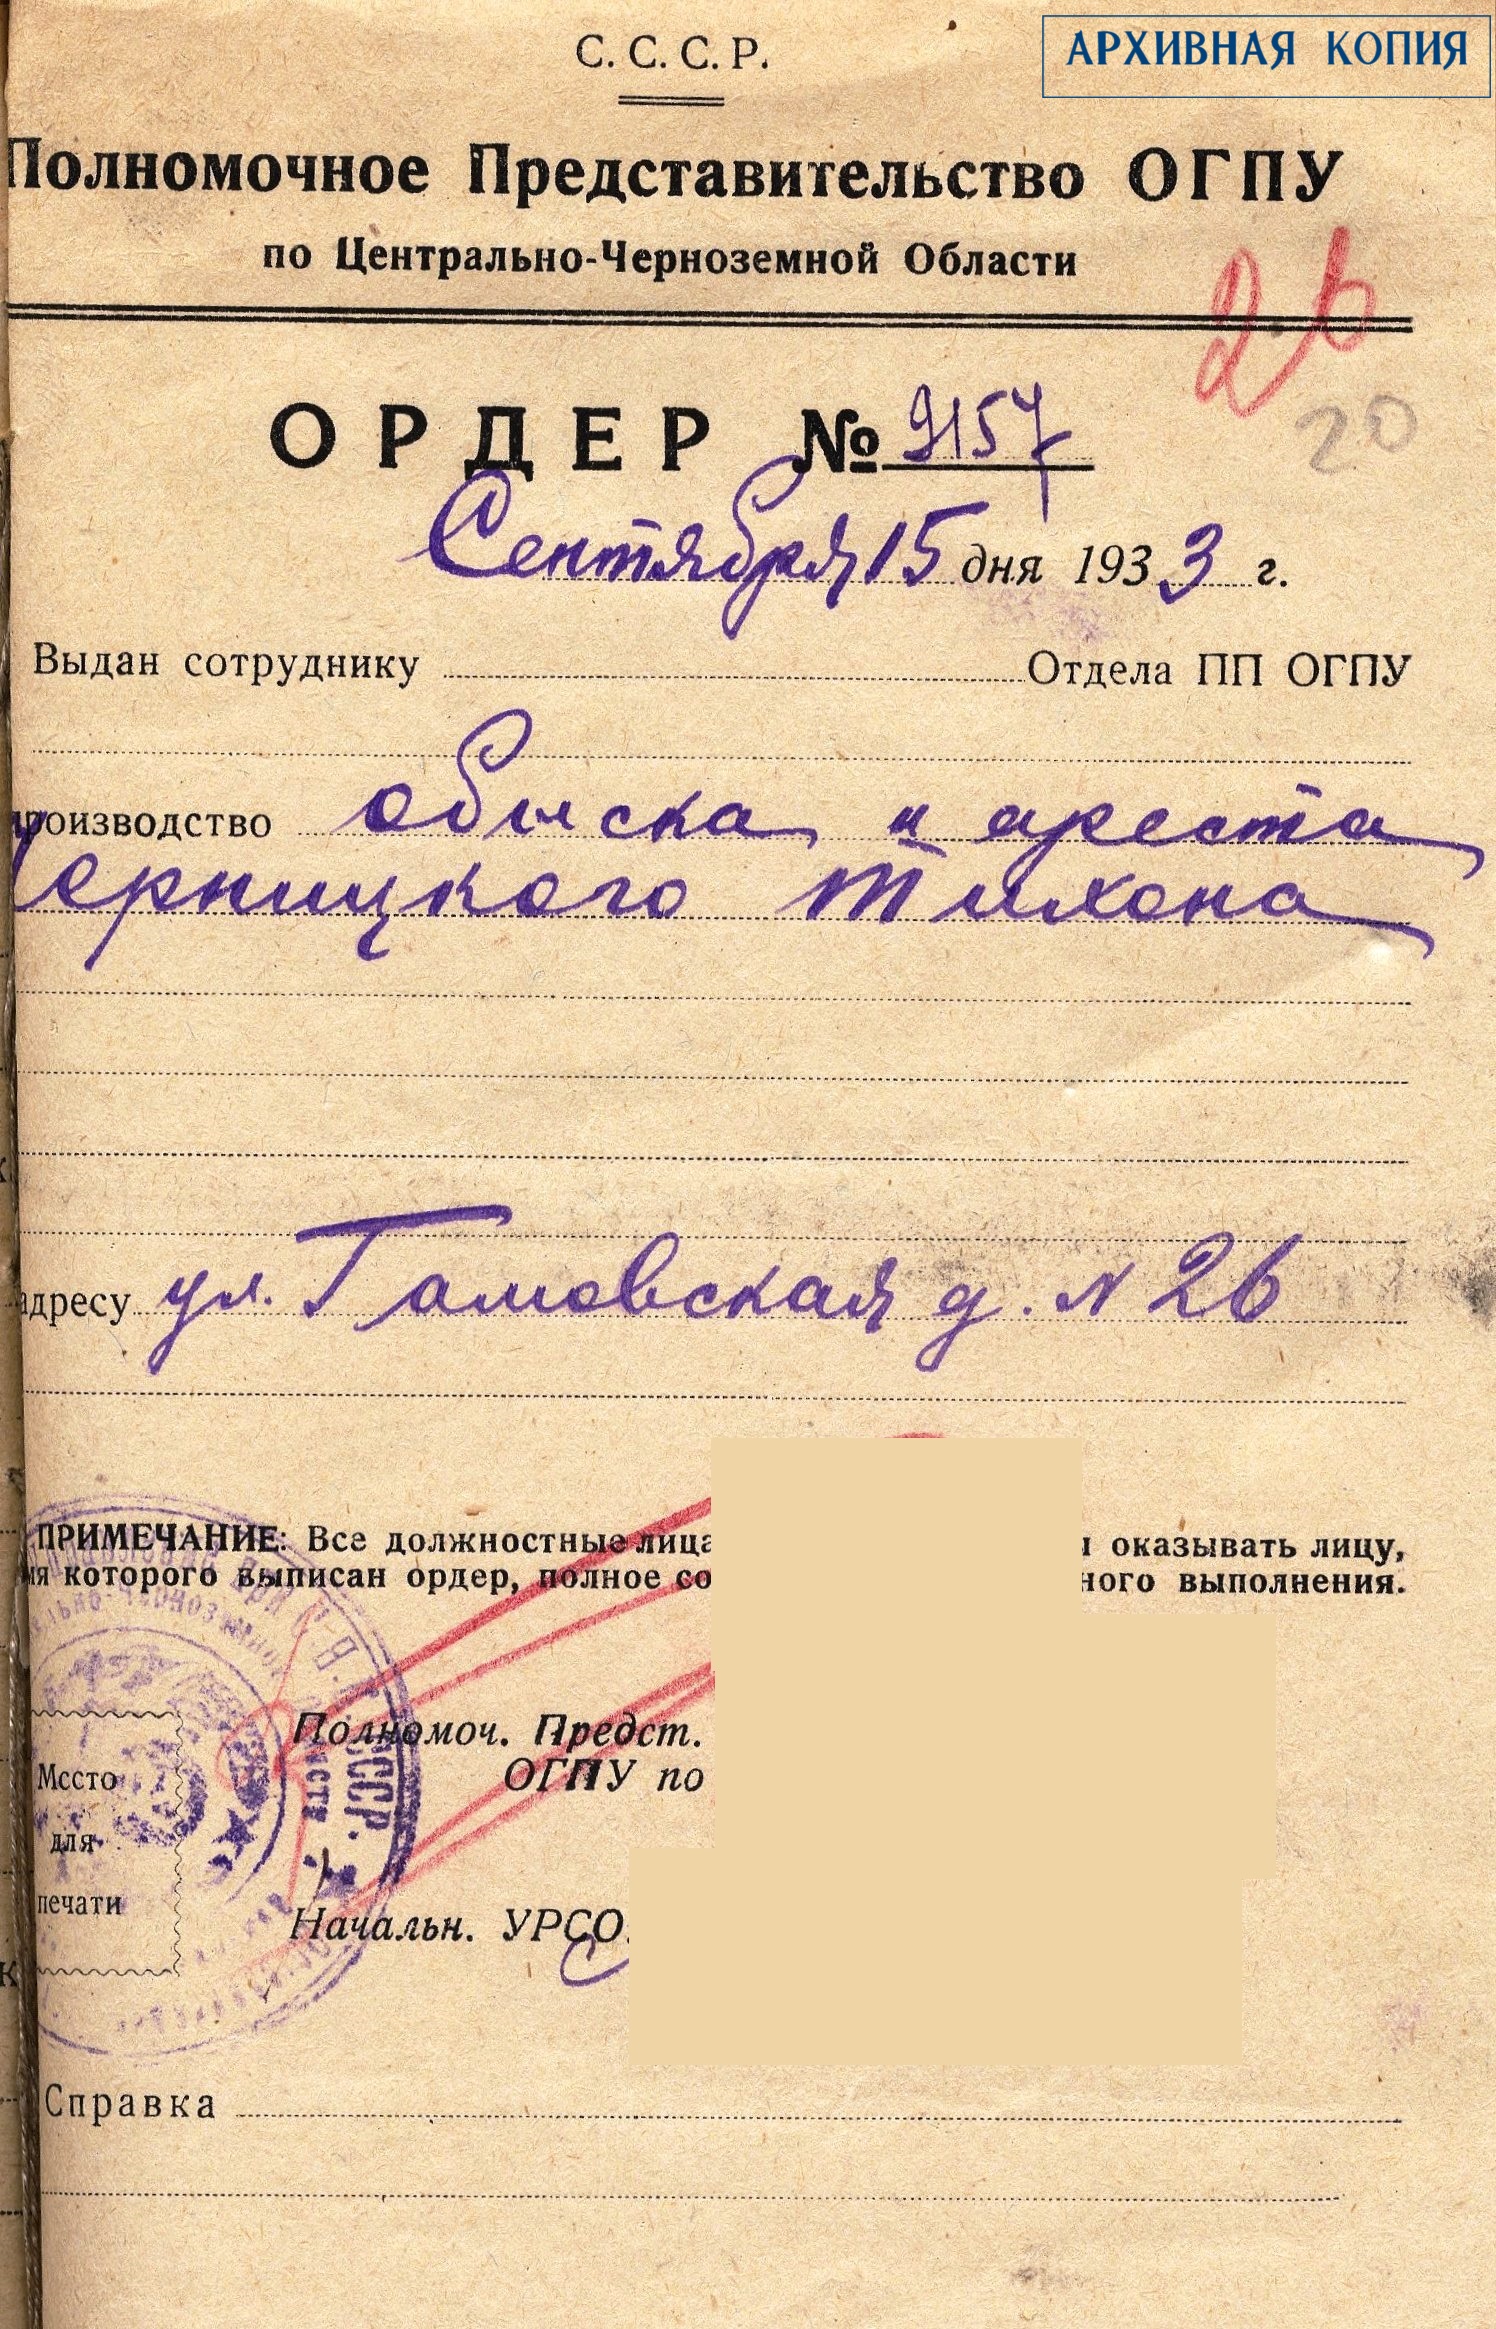 АРХИВНАЯ КОПИЯ
С. С. С. Р.
Полномочное Представительство ОГПУ
по Центрально-Черноземной Области
26
20
ОРДЕР № 9157
Сентября 15 дня 1933 г.
Выдан сотруднику Отдела ПП ОГПУ
производство обыска и ареста
Черницкого Тихона
адресу ул. Гамовская д. N 26
ПРИМЕЧАНИЕ: Все должностные лица оказывать лицу,
которого выписан ордер, полное со ного выполнения.
Полномоч. Предст.
ОГПУ по
Место
для
печати
Начальн. УРСО.
Справка